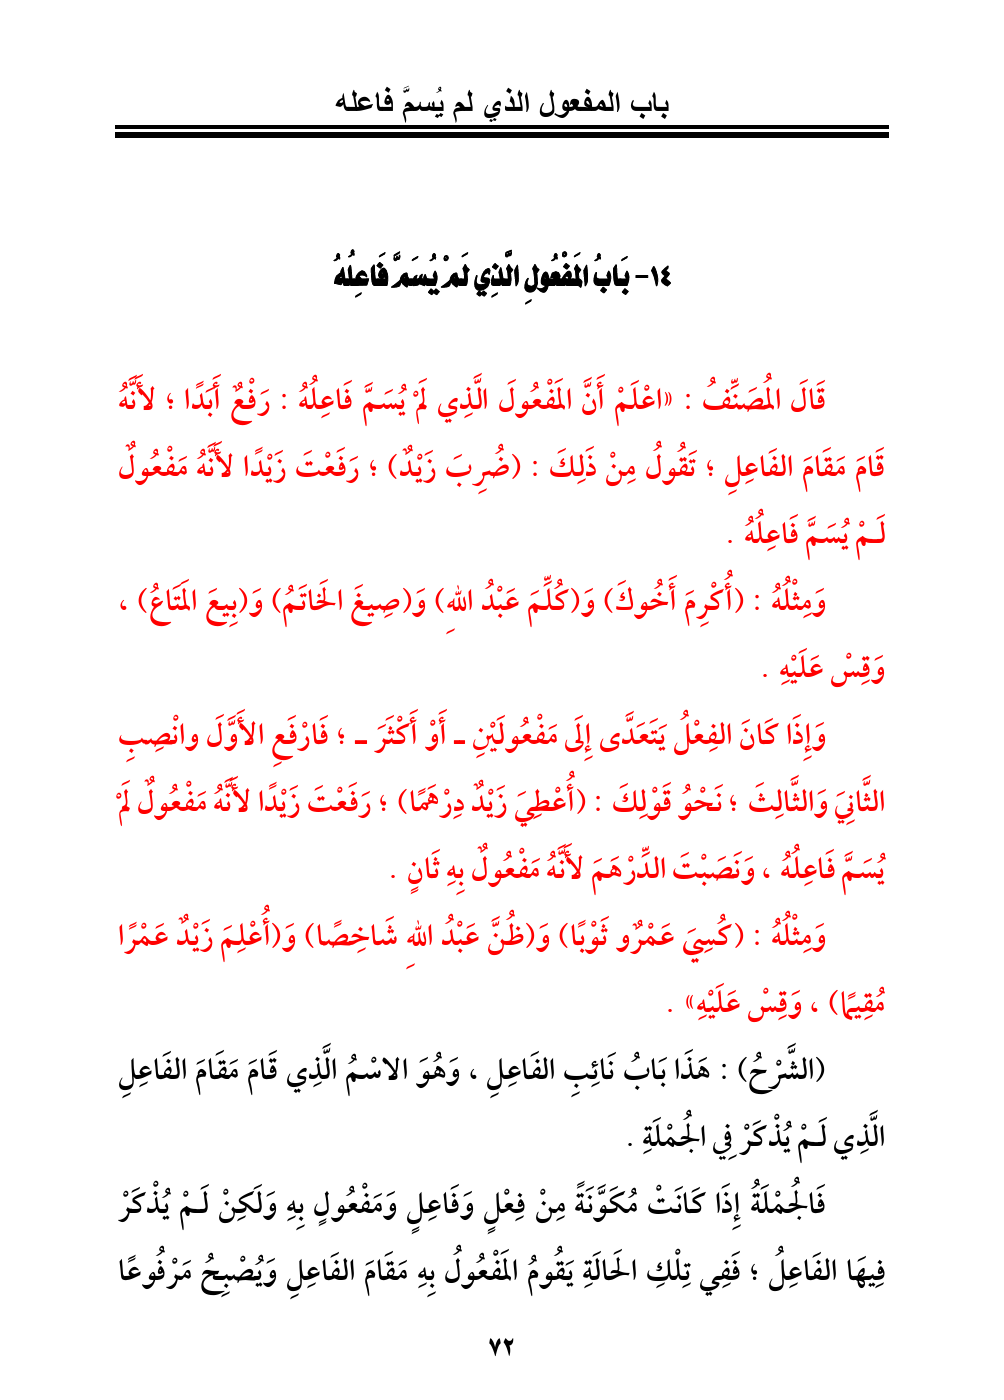 باب المفعول الذي لم يُسمَّ فاعله
١٤- بَابُ المَفْعُولِ الَّذِي لَمْ يُسَمَّ فَاعِلُهُ
قَالَ المُصَنِّفُ : «اعْلَمْ أَنَّ المَفْعُولَ الَّذِي لَمْ يُسَمَّ فَاعِلُهُ : رَفْعٌ أَبَدًا ؛ لأَنَّهُ
قَامَ مَقَامَ الفَاعِلِ ؛ تَقُولُ مِنْ ذَلِكَ : (ضُرِبَ زَيْدٌ) ؛ رَفَعْتَ زَيْدًا لأَنَّهُ مَفْعُولٌ
لَـمْ يُسَمَّ فَاعِلُهُ .
وَمِثْلُهُ : (أُكْرِمَ أَخُوكَ) وَ(كُلِّمَ عَبْدُ اللهِ) وَ(صِيغَ الخَاتَمُ) وَ(بِيعَ المَتَاعُ) ،
وَقِسْ عَلَيْهِ .
وَإِذَا كَانَ الفِعْلُ يَتَعَدَّى إِلَى مَفْعُولَيْنِ ـ أَوْ أَكْثَرَ ـ ؛ فَارْفَعِ الأَوَّلَ وانْصِبِ
الثَّانِيَ وَالثَّالِثَ ؛ نَحْوُ قَوْلِكَ : (أُعْطِيَ زَيْدٌ دِرْهَمًا) ؛ رَفَعْتَ زَيْدًا لأَنَّهُ مَفْعُولٌ لَمْ
يُسَمَّ فَاعِلُهُ ، وَنَصَبْتَ الدِّرْهَمَ لأَنَّهُ مَفْعُولٌ بِهِ ثَانٍ .
وَمِثْلُهُ : (كُسِيَ عَمْرٌو ثَوْبًا) وَ(ظُنَّ عَبْدُ اللهِ شَاخِصًا) وَ(أُعْلِمَ زَيْدٌ عَمْرًا
مُقِيمًا) ، وَقِسْ عَلَيْهِ» .
(الشَّرْحُ) : هَذَا بَابُ نَائِبِ الفَاعِلِ ، وَهُوَ الاسْمُ الَّذِي قَامَ مَقَامَ الفَاعِلِ
الَّذِي لَـمْ يُذْكَرْ فِي الجُمْلَةِ .
فَالجُمْلَةُ إِذَا كَانَتْ مُكَوَّنَةً مِنْ فِعْلٍ وَفَاعِلٍ وَمَفْعُولٍ بِهِ وَلَكِنْ لَـمْ يُذْكَرْ
فِيهَا الفَاعِلُ ؛ فَفِي تِلْكِ الحَالَةِ يَقُومُ المَفْعُولُ بِهِ مَقَامَ الفَاعِلِ وَيُصْبِحُ مَرْفُوعًا
٧٢